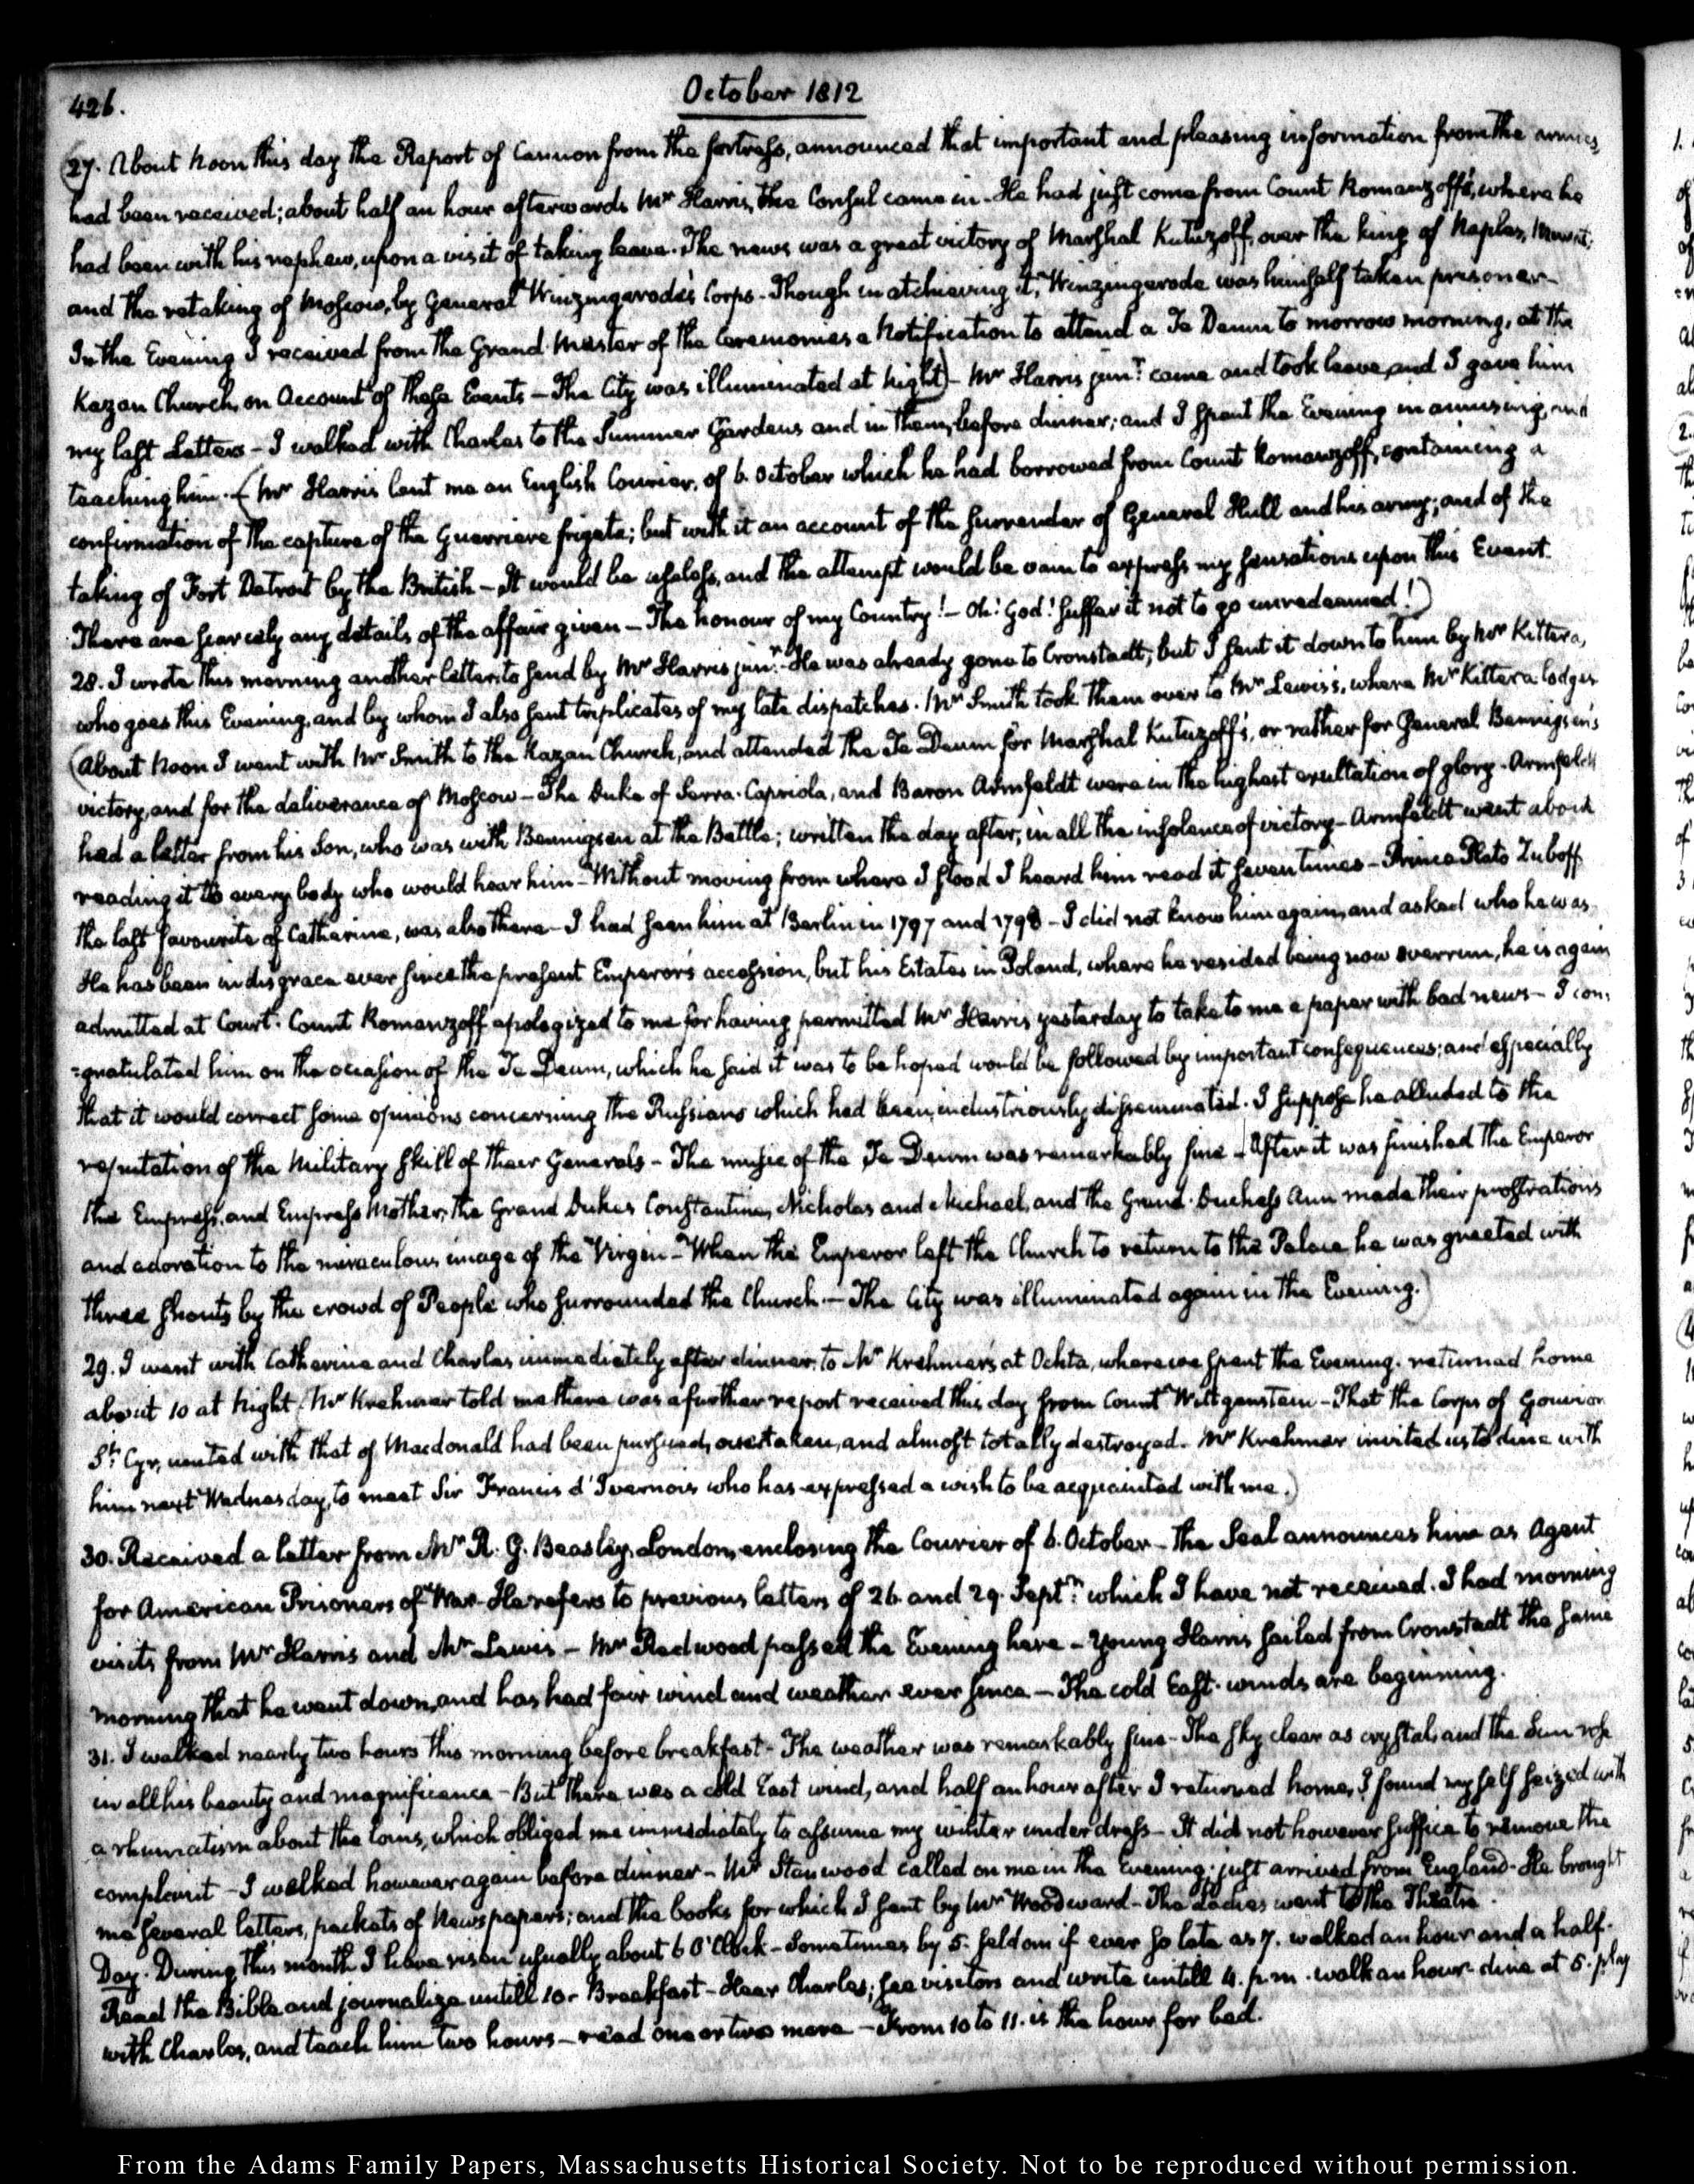 426.
October 1812
(27. About noon this day the Report of Cannon from the fortress, announced that important and pleasing information from the armies
had been received; about half an hour afterwards Mr. Harris, the Consul came in. He had just come from Count Romanzoff's, where he
had been with his nephew, upon a visit of taking leave. The news was a great victory of Marshal Kutuzoff, over the king of Naples, Murat;
and the retaking of Moscow, by General Winzingerode's Corps. Though in atchieving it, Winzingerode was himself taken prisoner—
In the Evening I received from the Grand Master of the Ceremonies a Notification to attend a Te Deum to morrow morning, at the
Kazan Church, on Account of these Events — The City was illuminated at Night) — Mr. Harris junr. came and took leave, and I gave him
my last Letters — I walked with Charles to the Summer Gardens and in them, before dinner; and I spent the Evening in amusing, and
teaching him. (Mr. Harris lent me an English Courier, of 6. October which he had borrowed from Count Romanzoff, containing a
confirmation of the capture of the Guerriere frigate; but with it an account of the surrender of General Hull and his army; and of the
taking of Fort Detroit by the British — It would be useless, and the attempt would be vain to express my sensations upon this Event.
There are scarcely any details of the affair given — The honour of my Country! — Oh! God! suffer it not to go unredeemed!)
28. I wrote this morning another letter, to send by Mr. Harris junr. He was already gone to Cronstadt; but I sent it down to him by Mr. Kittera,
who goes this Evening, and by whom I also sent triplicates of my late dispatches. Mr. Smith took them over to Mr. Lewis's, where Mr. Kittera lodges
(About Noon I went with Mr. Smith to the Kazan Church, and attended the Te Deum for Marshal Kutuzoff's, or rather for General Bennigsen's
victory, and for the deliverance of Moscow — The Duke of Serra-Capriola, and Baron Armfeldt were in the highest exultation of glory. Armfeldt
had a letter from his Son, who was with Bennigsen at the Battle; written the day after, in all the insolence of victory — Armfeldt went about
reading it to every body who would hear him — Without moving from where I stood I heard him read it seven times — Prince Plato Zuboff
the last favourite of Catharine, was also there — I had seen him at Berlin in 1797 and 1798 — I did not know him again, and asked who he was.
He has been in disgrace ever since the present Emperor's accession, but his Estates in Poland, where he resided being now overrun, he is again
admitted at Court. Count Romanzoff apologized to me for having permitted Mr. Harris yesterday to take to me a paper with bad news — I con-
=gratulated him on the occasion of the Te Deum, which he said it was to be hoped would be followed by important consequences; and especially
that it would correct some opinions concerning the Russians which had been industriously disseminated. I suppose he alluded to the
reputation of the Military skill of their Generals — The music of the Te Deum was remarkably fine — After it was finished the Emperor
the Empress, and Empress Mother, the Grand Dukes Constantine, Nicholas and Michael, and the Grand-Duchess Ann made their prostrations
and adoration to the miraculous image of the Virgin — When the Emperor left the Church to return to the Palace he was greeted with
three shouts by the crowd of People who surrounded the Church. — The City was illuminated again in the Evening.)
29. I went with Catherine and Charles immediately after dinner, to Mr. Krehmer's at Ochta, where we spent the Evening. returned home
about 10 at Night. (Mr. Krehmer told me there was a further report received this day from Count Wittgenstein — That the Corps of Gouvion
St. Cyr, united with that of Macdonald had been pursued, overtaken, and almost totally destroyed. Mr. Krehmer invited us to dine with
him next Wednesday, to meet Sir Francis d'Ivernois who has expressed a wish to be acquainted with me.)
30. Received a letter from Mr. R. G. Beasley, London, enclosing the Courier of 6. October — The Seal announces him as Agent
for American Prisoners of War. He refers to previous letters of 26. and 29. Septr. which I have not received. I had morning
visits from Mr. Harris and Mr. Lewis — Mr. Redwood passed the Evening here — Young Harris sailed from Cronstadt the same
morning that he went down, and has had fair wind and weather ever since — The cold East-winds are beginning.
31. I walked nearly two hours this morning before breakfast — The weather was remarkably fine — The sky clear as crystal, and the Sun rose
in all his beauty and magnificence — But there was a cold East wind, and half an hour after I returned home, I found myself seized with
a rhumatism about the loins, which obliged me immediately to assume my winter under dress — It did not however suffice to remove the
complaint — I walked however again before dinner — Mr. Stanwood called on me in the Evening; just arrived from England. He brought
me several letters, packets of Newspapers; and the books for which I sent by Mr. Woodward — The Ladies went to the Theatre.
Day. During this month I have risen usually about 6 O'Clock — Sometimes by 5. seldom if ever so late as 7. walked an hour and a half.
Read the Bible and journalize untill 10. Breakfast — Hear Charles; see visitors and write untill 4. p.m. walk an hour. dine at 5. play
with Charles, and teach him two hours — read one or two more — From 10 to 11. is the hour for bed.
From the Adams Family Papers, Massachusetts Historical Society. Not to be reproduced without permission.